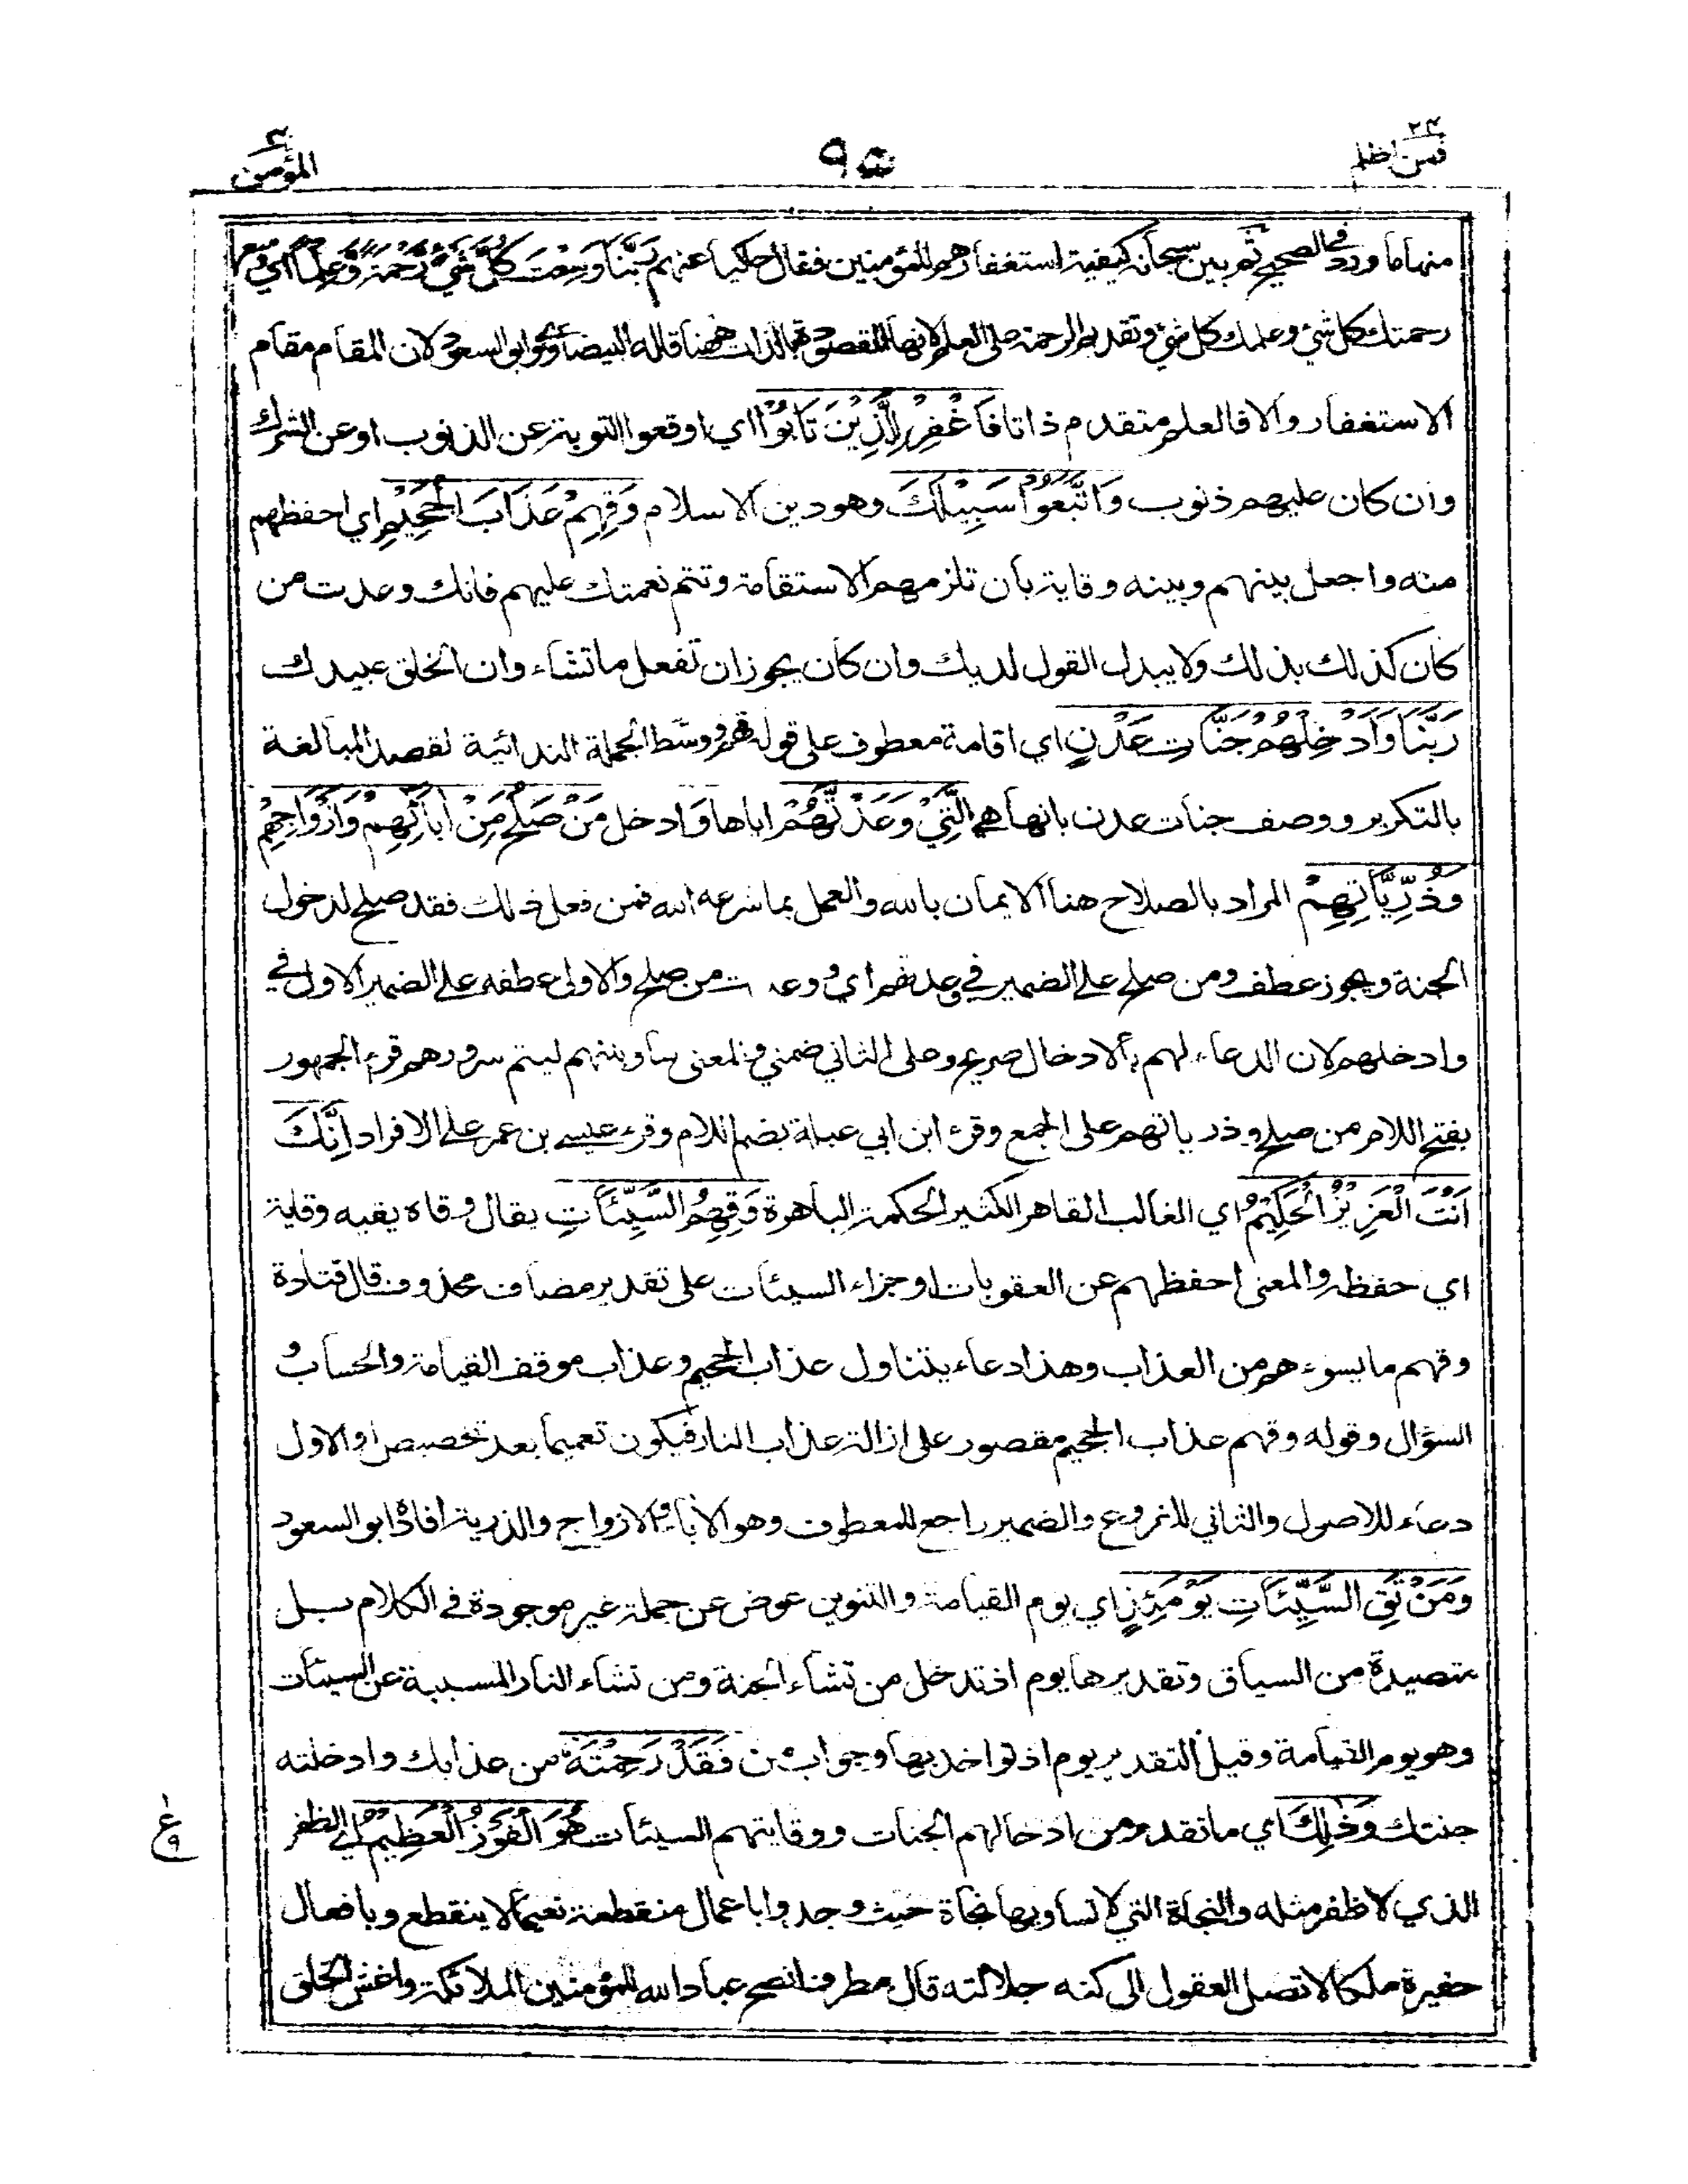 فمن اظلم ٢٤
٩٥
المؤمن ٤٠
منها ما ورد في الصحيح ثم بين سبحانه كيفية استغفارهم للمؤمنين فقال حاكيا عنهم رَبَّنَا وَسِعْتَ كُلَّ شَيْءٍ رَّحْمَةً وَّعِلْمًا اي وسع
رحمتك كل شئ وعلمك كل شئ وتقديم الرحمة على العلم لانها المقصودة بالذات ههنا قاله البيضاوي وابو السعود لان المقام مقام
الاستغفار والا فالعلم متقدم ذاتا فَاغْفِرْ لِلَّذِيْنَ تَابُوْا اي اوقعوا التوبة عن الذنوب او عن الشرك
وان كان عليهم ذنوب وَاتَّبَعُوْا سَبِيْلَكَ وهو دين الاسلام وَقِهِمْ عَذَابَ الْجَحِيْمِ اي احفظهم
منه واجعل بينهم وبينه وقاية بان تلزمهم الاستقامة وتتم نعمتك عليهم فانك وعدت من
كان كذلك بذلك ولا يبدل القول لديك وان كان يجوز ان تفعل ما تشاء وان الخلق عبيدك
رَبَّنَا وَاَدْخِلْهُمْ جَنَّاتِ عَدْنٍ اي اقامة معطوف على قوله قهم ووسّط الجملة الندائية لقصد المبالغة
بالتكرير ووصف جنات عدن بانها هي الَّتِيْ وَعَدْتَّهُمْ اياها وَادخل مَنْ صَلَحَ مِنْ اٰبَآئِهِمْ وَاَزْوَاجِهِمْ
وَذُرِّيَّاتِهِمْ المراد بالصلاح هنا الايمان بالله والعمل بما شرعه الله فمن فعل ذلك فقد صلح لدخول
الجنة ويجوز عطف ومن صلح على الضمير في وعدتهم اي ووعدت من صلح والاولى عطفه على الضمير الاول في
وادخلهم لان الدعاء لهم بالادخال صريح وعلى الثاني ضمني والمعنى ساو بينهم ليتم سرورهم قرء الجمهور
بفتح اللام من صلح وذرياتهم على الجمع وقرء ابن ابي عبلة بضم اللام وقرء عيسى بن عمر على الافراد اِنَّكَ
اَنْتَ الْعَزِيْزُ الْحَكِيْمُ اي الغالب القاهر الكثير الحكمة الباهرة وَقِهِمُ السَّيِّئَاتِ يقال وقاه يقيه وقاية
اي حفظه والمعنى احفظهم عن العقوبات او جزاء السيئات على تقدير مضاف محذوف قال قتادة
وقهم ما يسوءهم من العذاب وهذا دعاء يتناول عذاب الجحيم وعذاب موقف القيامة والحساب و
السؤال وقوله وقهم عذاب الجحيم مقصور على ازالة عذاب النار فيكون تعميما بعد تخصيص او الاول
دعاء للاصول والثاني للفروع والضمير راجع للمعطوف وهو الاباء والازواج والذرية افاده ابو السعود
وَمَنْ تَقِ السَّيِّئَاتِ يَوْمَئِذٍ اي يوم القيامة والتنوين عوض عن جملة غير موجودة في الكلام بل
متصيدة من السياق وتقديرها يوم اذ تدخل من تشاء الجنة ومن تشاء النار المسببة عن السيئات
وهو يوم القيامة وقيل التقدير يوم اذ تواخذ بها وجواب من فَقَدْ رَحِمْتَهٗ من عذابك وادخلته
جنتك وَذٰلِكَ اي ما تقدم من ادخالهم الجنات ووقايتهم السيئات هُوَ الْفَوْزُ الْعَظِيْمُ اي الظفر
الذي لا ظفر مثله والنجاة التي لا تساويها نجاة حيث وجدوا باعمال منقطعة نعيما لا ينقطع وبافعال
حقيرة ملكا لا تصل العقول الى كنه جلالته قال مطرف انصح عباد الله للمؤمنين الملائكة واغش الخلق
ع ٩